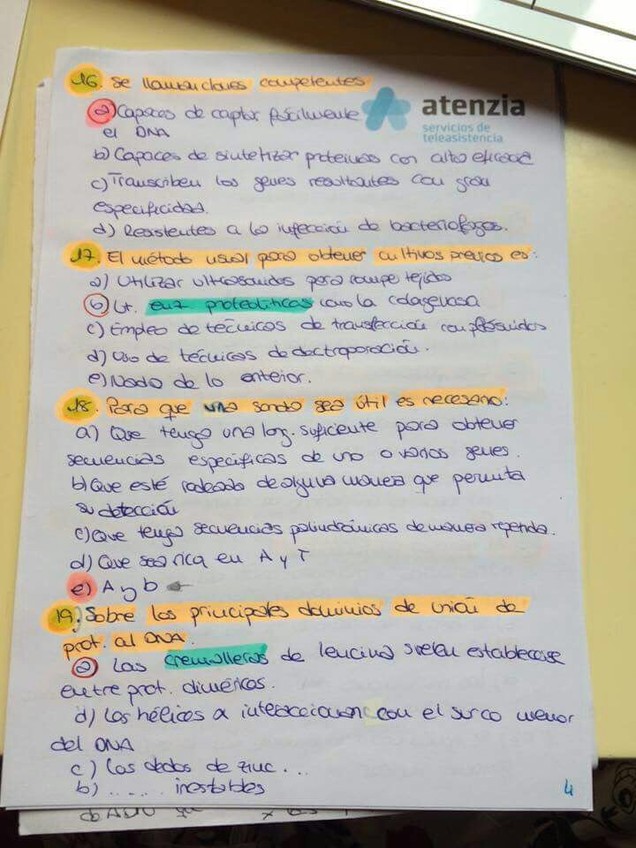 16. Se llaman clones competentes
a) Capaces de captar fácilmente
el DNA
atenzia
servicios de
teleasistencia
b) Capaces de sintetizar proteinas con alta eficacia
c) Transcriben los genes resultantes con gran
especificidad.
d) Resistentes a la infección de bacteriofagos.
17. El método usual para obtener cultivos es:
a) Utilizar ultrasonidos para rompe tejidos
b) Ut. enz proteolíticas como la colagenasa
c) Empleo de técnicas de transfección con plásmidos
d) Uso de técnicas de electroporación.
e) Nada de lo anterior.
18. Para que una sonda sea útil es necesario:
a) Que tenga una long. suficiente para obtener
secuencias específicas de uno o varios genes.
b) Que esté de alguna manera que permita
su detección
c) Que tenga secuencias palindrómicas de manera repetida.
d) Que sea rica en A y T
e) A y b
19. Sobre los principales dominios de unión de
prot. al DNA.
a) Las cremalleras de leucina suelen establecerse
entre prot. diméricas.
d) Las hélices α interaccionan con el surco menor
del DNA
c) Los dedos de zinc...
b) ..... inestables
4